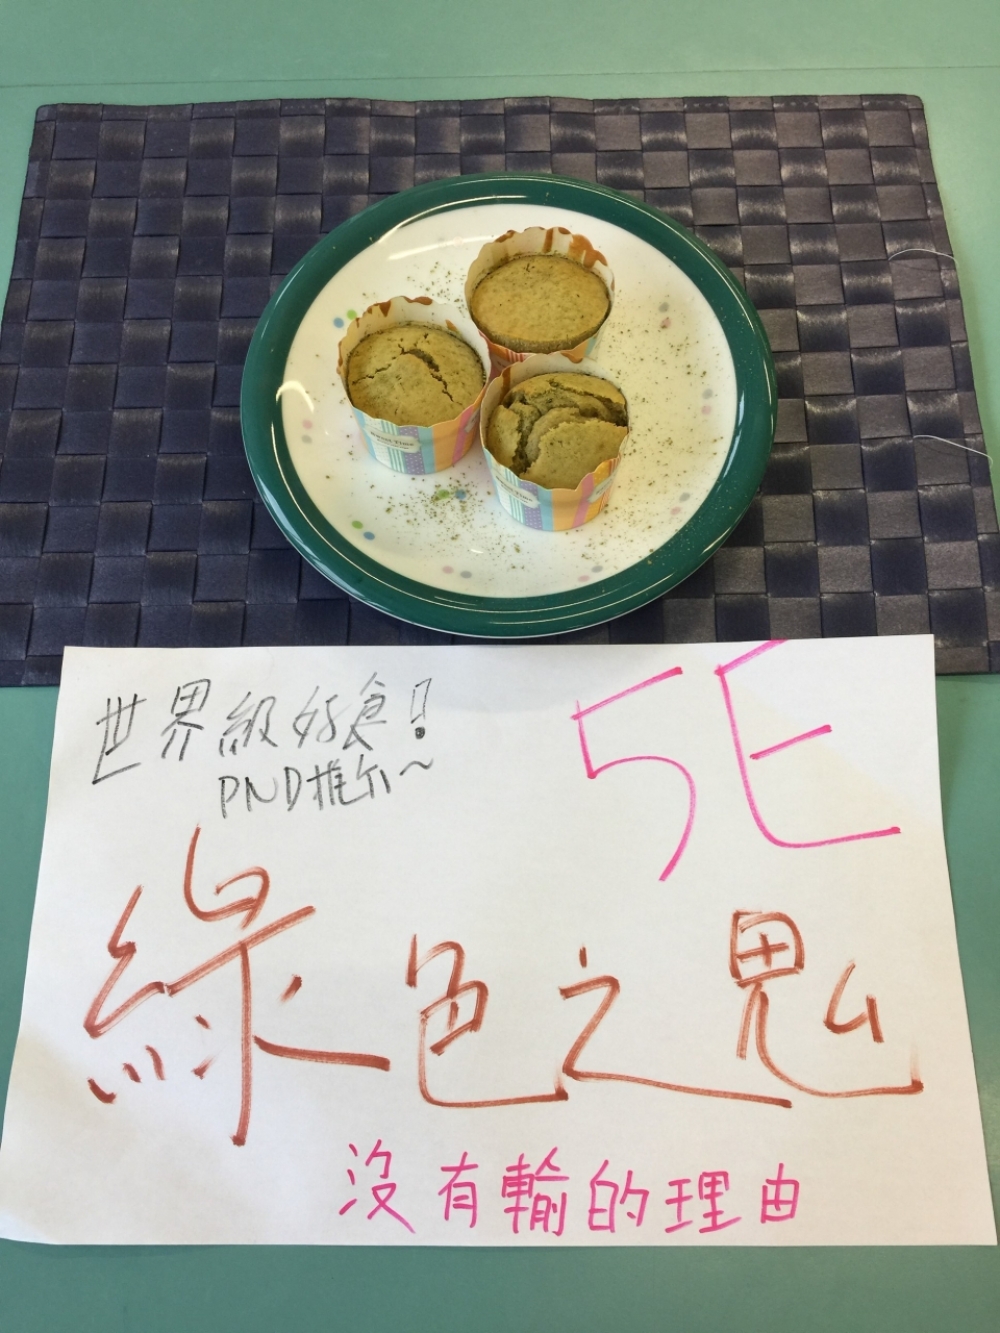 世界級好食!
PND推介~
5E
綠色之鬼
沒有輸的理由